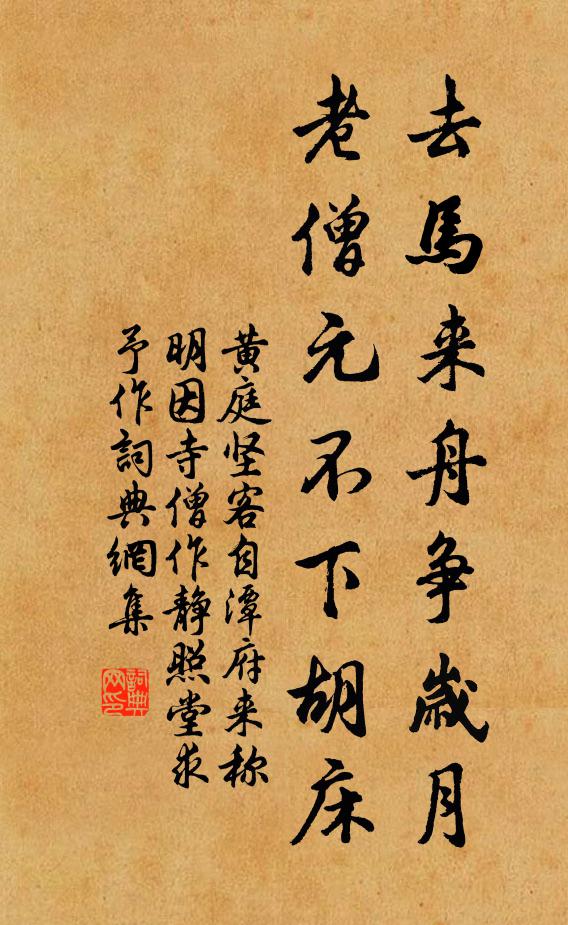 去馬来舟争歲月
老僧元不下胡床
黄庭坚客自潭府来称
明因寺僧作静照堂求
予作詞典網集
詞典
网印